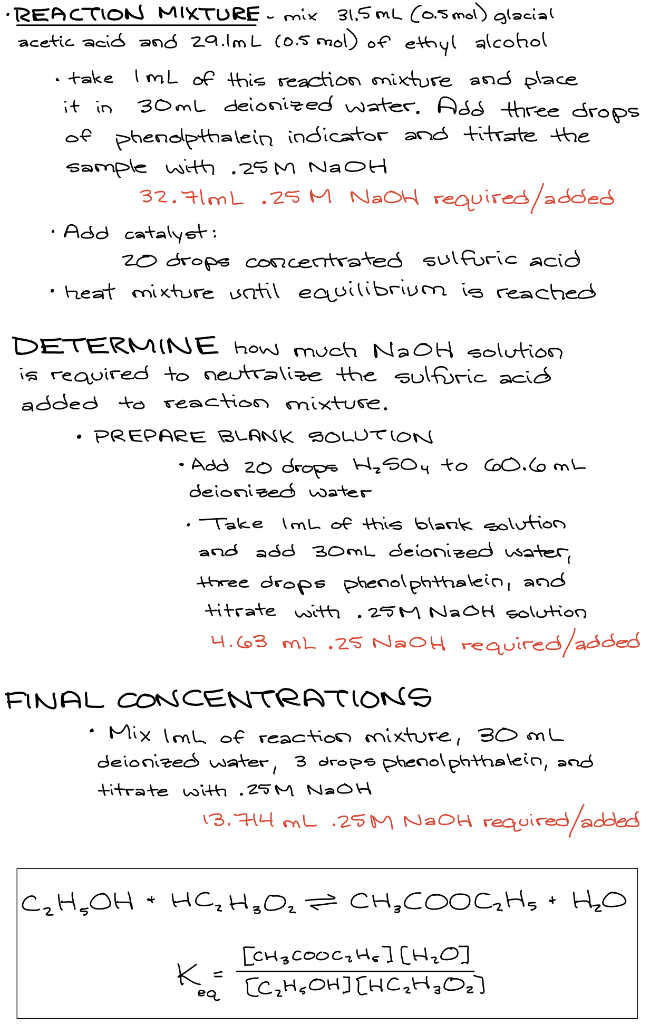 · REACTION MIXTURE - mix 31.5mL (0.5mol) glacial
acetic acid and 29.1mL (0.5mol) of ethyl alcohol
· take 1mL of this reaction mixture and place
it in 30mL deionized water. Add three drops
of phenolpthalein indicator and titrate the
sample with .25M NaOH
32.71mL .25M NaOH required/added
· Add catalyst:
20 drops concentrated sulfuric acid
· heat mixture until equilibrium is reached
DETERMINE how much NaOH solution
is required to neutralize the sulfuric acid
added to reaction mixture.
· PREPARE BLANK SOLUTION
· Add 20 drops H₂SO₄ to 60.6mL
deionized water
· Take 1mL of this blank solution
and add 30mL deionized water,
three drops phenolphthalein, and
titrate with .25M NaOH solution
4.63 mL .25 NaOH required/added
FINAL CONCENTRATIONS
· Mix 1mL of reaction mixture, 30 mL
deionized water, 3 drops phenolphthalein, and
titrate with .25M NaOH
13.714 mL .25M NaOH required/added
C₂H₅OH + HC₂H₃O₂ ⇌ CH₃COOC₂H₅ + H₂O
K_eq = [CH₃COOC₂H₅][H₂O] / [C₂H₅OH][HC₂H₃O₂]